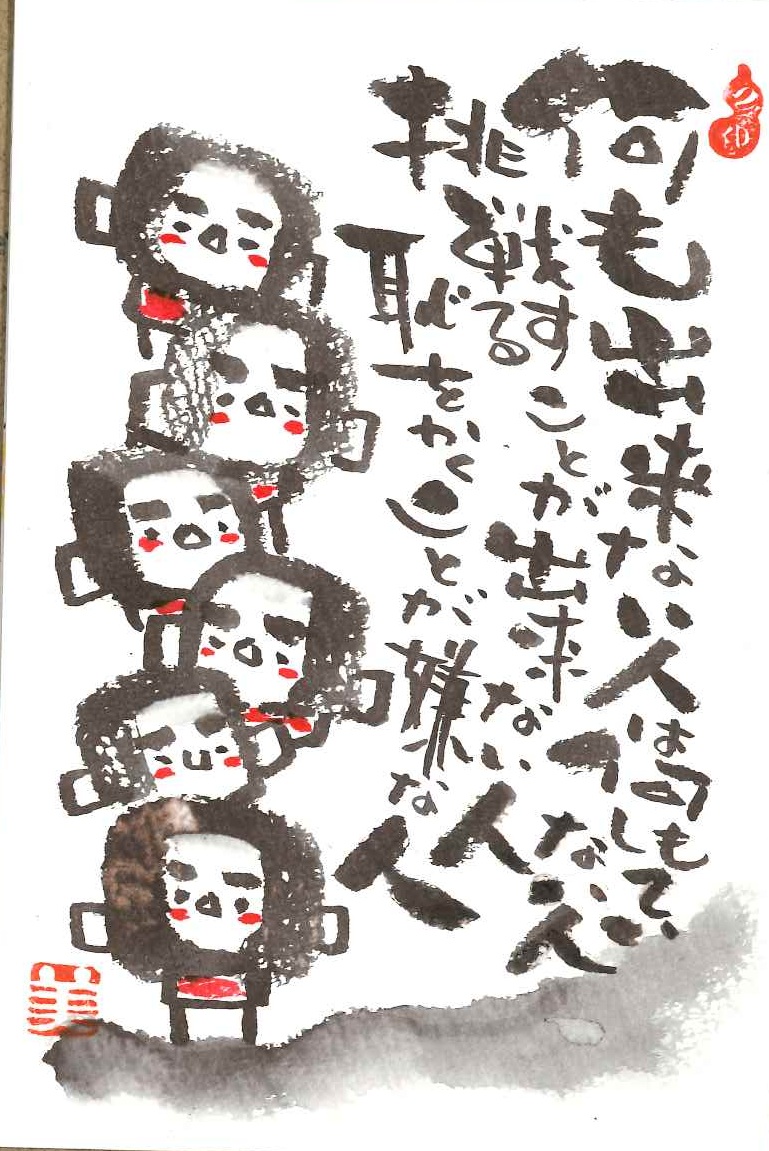 何も出来ない人は何もしていない人
挑戦することが出来ない人
恥をかくことが嫌な人
美